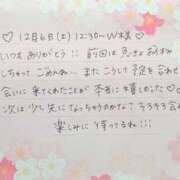 ♡ 12月6日(土) 12:30〜W様♡
いつもありがとう!! 前回は急きょお休み
しちゃってごめんね… またこうして予定を合わせて
会いに来てくれたことが本当に嬉しかった♡
次は少し先になっちゃうのかな? そろそろ会
楽しみに待ってるね!!